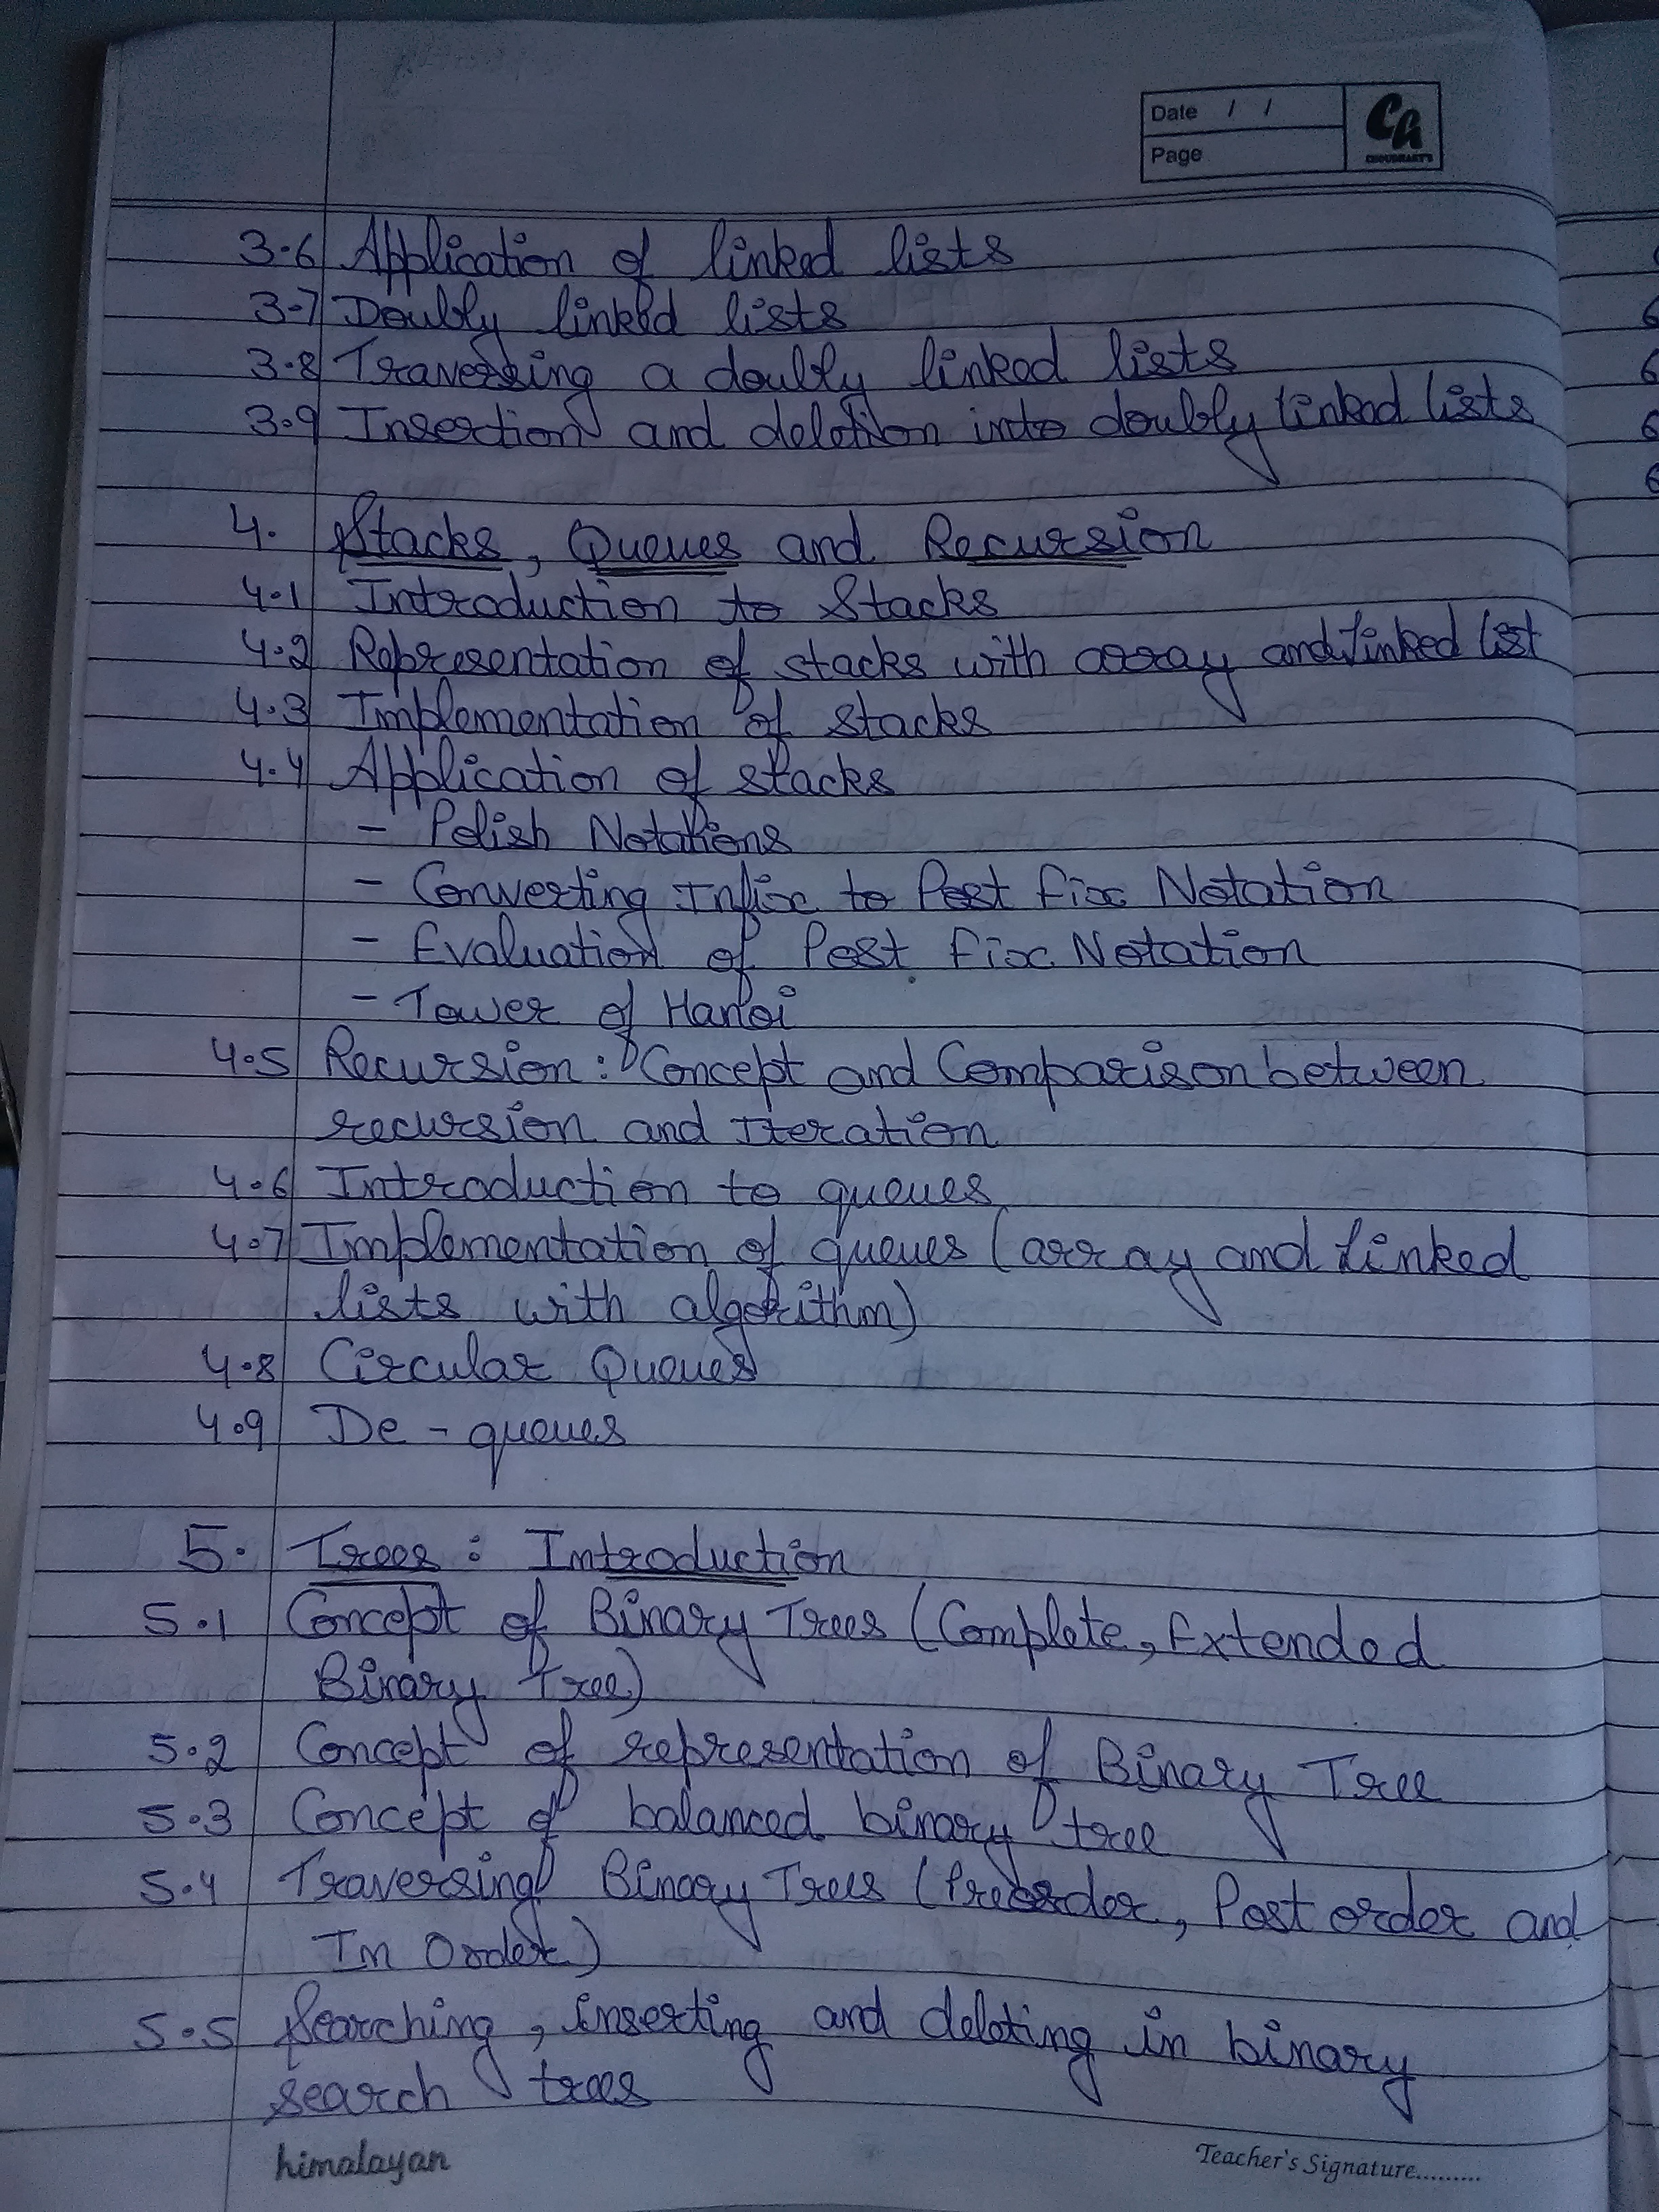 Date / /
Page
CA
CHOUDHARY'S
3.6 Application of linked lists
3.7 Doubly linked lists
3.8 Traversing a doubly linked lists
3.9 Insertion and deletion into doubly linked lists
4. Stacks, Queues and Recursion
4.1 Introduction to Stacks
4.2 Representation of stacks with array and linked list
4.3 Implementation of stacks
4.4 Application of stacks
- Polish Notations
- Converting Infix to Post fix Notation
- Evaluation of Post fix Notation
- Tower of Hanoi
4.5 Recursion : Concept and Comparison between
recursion and Iteration
4.6 Introduction to queues
4.7 Implementation of queues (array and linked
lists with algorithm)
4.8 Circular Queues
4.9 De - queues
5. Trees : Introduction
5.1 Concept of Binary Trees (Complete, Extended
Binary Tree)
5.2 Concept of representation of Binary Tree
5.3 Concept of balanced binary tree
5.4 Traversing Binary Trees (Preorder, Post order and
In Order)
5.5 Searching, inserting and deleting in binary
search trees
himalayan
Teacher's Signature.........